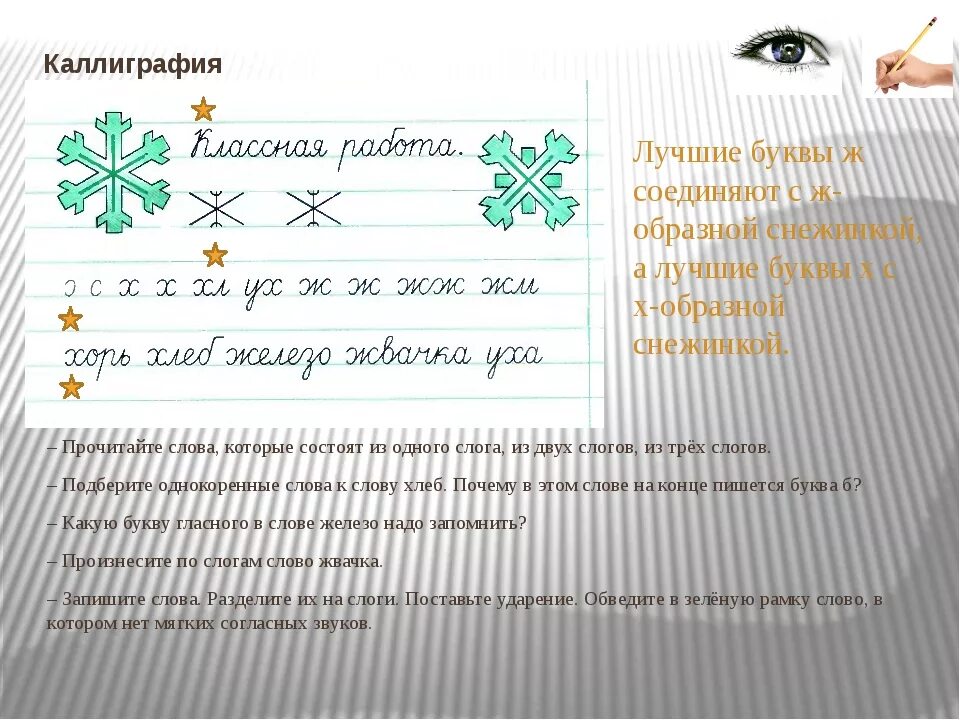 Каллиграфия
Классная работа.
э с х х хл ух ж ж жж жм
хорь хлеб железо жвачка уха
Лучшие буквы ж
соединяют с ж-
образной снежинкой,
а лучшие буквы х с
х-образной
снежинкой.
– Прочитайте слова, которые состоят из одного слога, из двух слогов, из трёх слогов.
– Подберите однокоренные слова к слову хлеб. Почему в этом слове на конце пишется буква б?
– Какую букву гласного в слове железо надо запомнить?
– Произнесите по слогам слово жвачка.
– Запишите слова. Разделите их на слоги. Поставьте ударение. Обведите в зелёную рамку слово, в
котором нет мягких согласных звуков.